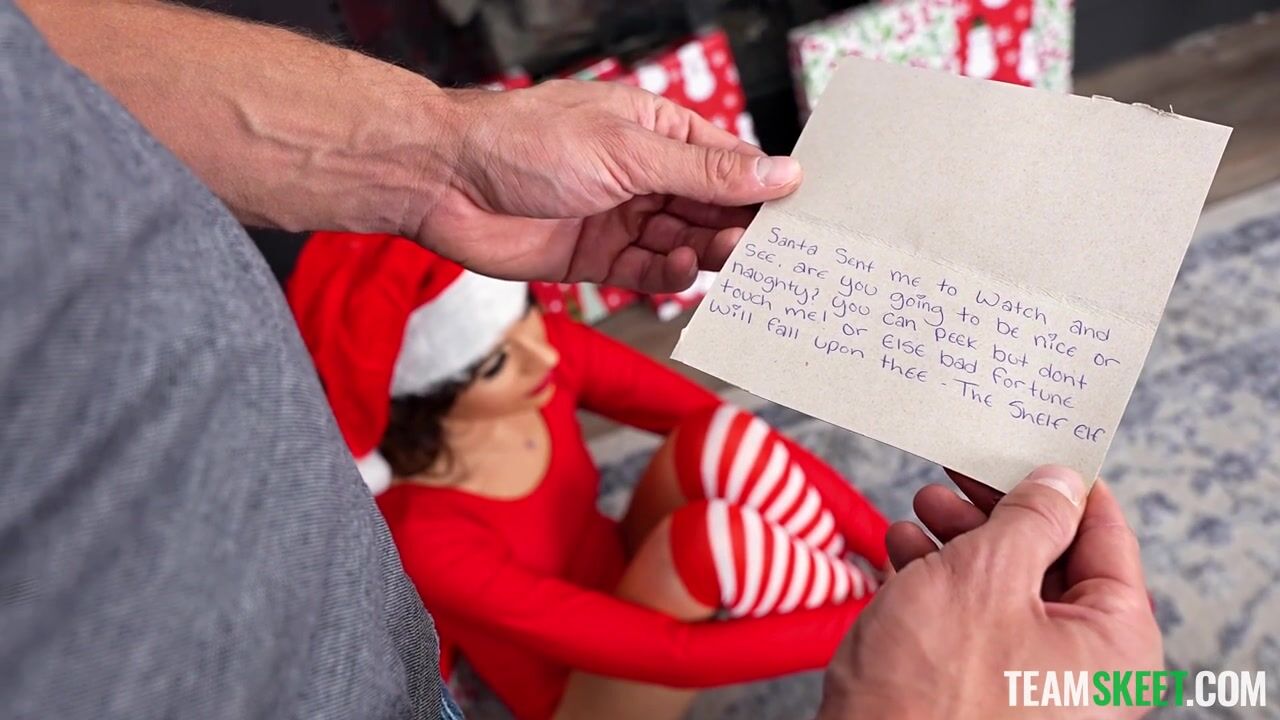 Santa Sent me to watch and
See. are you going to be nice or
naughty? you can peek but dont
touch me! or else bad fortune
will fall upon thee - The Shelf elf
TEAMSKEET.COM